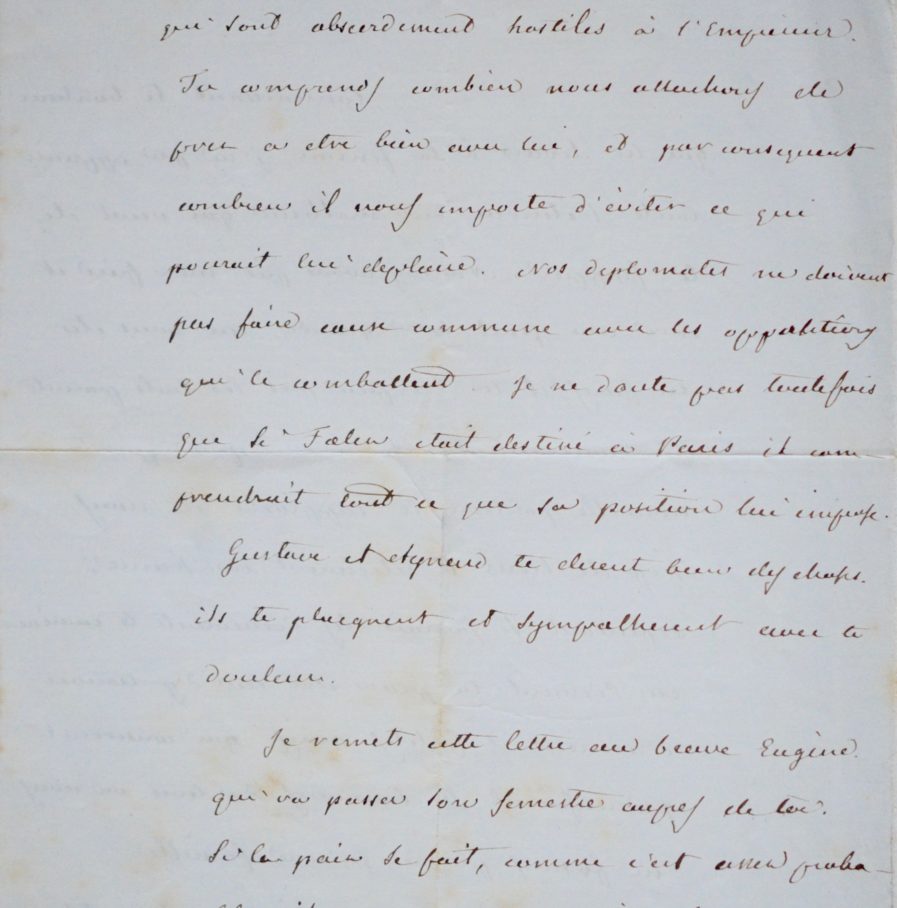 qui sont absurdement hostiles à l'Empereur.
Tu comprends combien nous attachons de
prix a etre bien avec lui, et par consequent
combien il nous importe d'éviter ce qui
pourait lui deplaire. Nos diplomates ne doivent
pas faire cause commune avec les oppositions
qui le combattent Je ne doute pas toutefois
que si était destiné à Paris il com
prendrait tout ce que sa position lui impose.
Gustave et te disent bien des choses.
ils te plaignent et sympathisent avec ta
douleur.
Je remets cette lettre au brave Eugène
qui va passer son semestre aupres de toi.
Si la paix se fait, comme c'est assez proba-